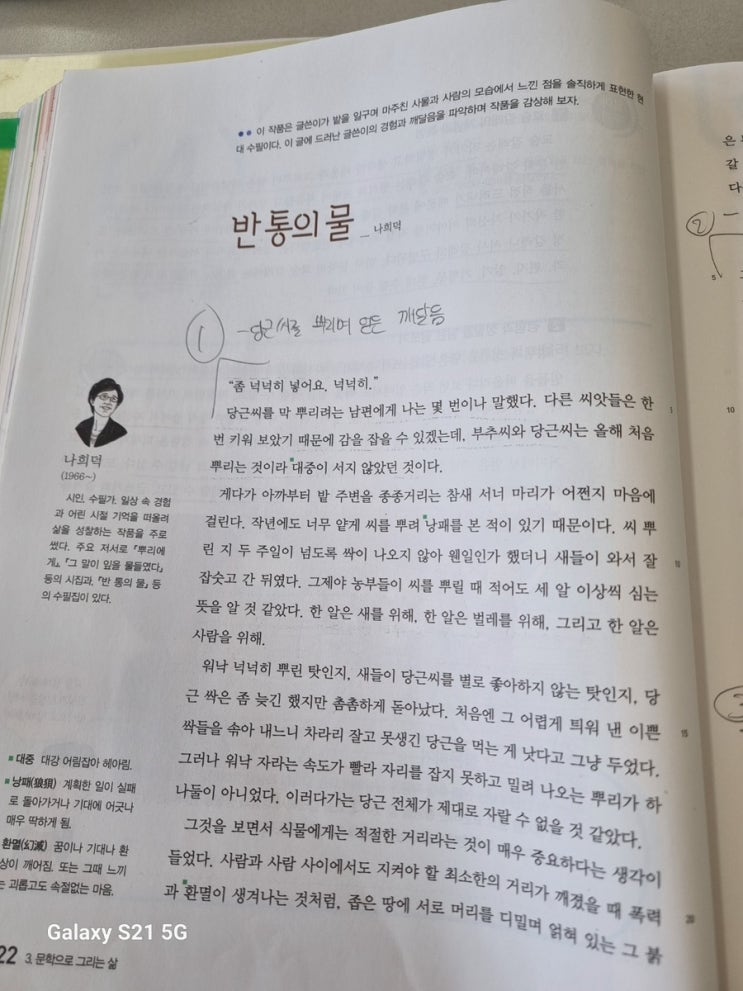 ●● 이 작품은 글쓴이가 밭을 일구며 마주친 사물과 사람의 모습에서 느낀 점을 솔직하게 표현한 현
대 수필이다. 이 글에 드러난 글쓴이의 경험과 깨달음을 파악하며 작품을 감상해 보자.
반 통의 물 _ 나희덕
① - 당근씨를 뿌리며 얻은 깨달음
“좀 넉넉히 넣어요. 넉넉히.”
당근씨를 막 뿌리려는 남편에게 나는 몇 번이나 말했다. 다른 씨앗들은 한
번 키워 보았기 때문에 감을 잡을 수 있겠는데, 부추씨와 당근씨는 올해 처음
뿌리는 것이라 대중이 서지 않았던 것이다.
게다가 아까부터 밭 주변을 종종거리는 참새 서너 마리가 어쩐지 마음에
걸린다. 작년에도 너무 얕게 씨를 뿌려 낭패를 본 적이 있기 때문이다. 씨 뿌
린 지 두 주일이 넘도록 싹이 나오지 않아 웬일인가 했더니 새들이 와서 잘
잡숫고 간 뒤였다. 그제야 농부들이 씨를 뿌릴 때 적어도 세 알 이상씩 심는
뜻을 알 것 같았다. 한 알은 새를 위해, 한 알은 벌레를 위해, 그리고 한 알은
사람을 위해.
워낙 넉넉히 뿌린 탓인지, 새들이 당근씨를 별로 좋아하지 않는 탓인지, 당
근 싹은 좀 늦긴 했지만 촘촘하게 돋아났다. 처음엔 그 어렵게 틔워 낸 이쁜
싹들을 솎아 내느니 차라리 잘고 못생긴 당근을 먹는 게 낫다고 그냥 두었다.
그러나 워낙 자라는 속도가 빨라 자리를 잡지 못하고 밀려 나오는 뿌리가 하
나둘이 아니었다. 이러다가는 당근 전체가 제대로 자랄 수 없을 것 같았다.
그것을 보면서 식물에게는 적절한 거리라는 것이 매우 중요하다는 생각이
들었다. 사람과 사람 사이에서도 지켜야 할 최소한의 거리가 깨졌을 때 폭력
과 환멸이 생겨나는 것처럼, 좁은 땅에 서로 머리를 디밀며 얽혀 있는 그 붉
5
10
15
20
나희덕
(1966~)
시인, 수필가. 일상 속 경험
과 어린 시절 기억을 떠올려
삶을 성찰하는 작품을 주로
썼다. 주요 저서로 『뿌리에
게』, 『그 말이 잎을 물들였다』
등의 시집과, 『반 통의 물』 등
의 수필집이 있다.
대중 대강 어림잡아 헤아림.
낭패(狼狽) 계획한 일이 실패
로 돌아가거나 기대에 어긋나
매우 딱하게 됨.
환멸(幻滅) 꿈이나 기대나 환
상이 깨어짐. 또는 그때 느끼
는 괴롭고도 속절없는 마음.
Galaxy S21 5G
22 3. 문학으로 그리는 삶
은
갈
다
② -
5
10
③